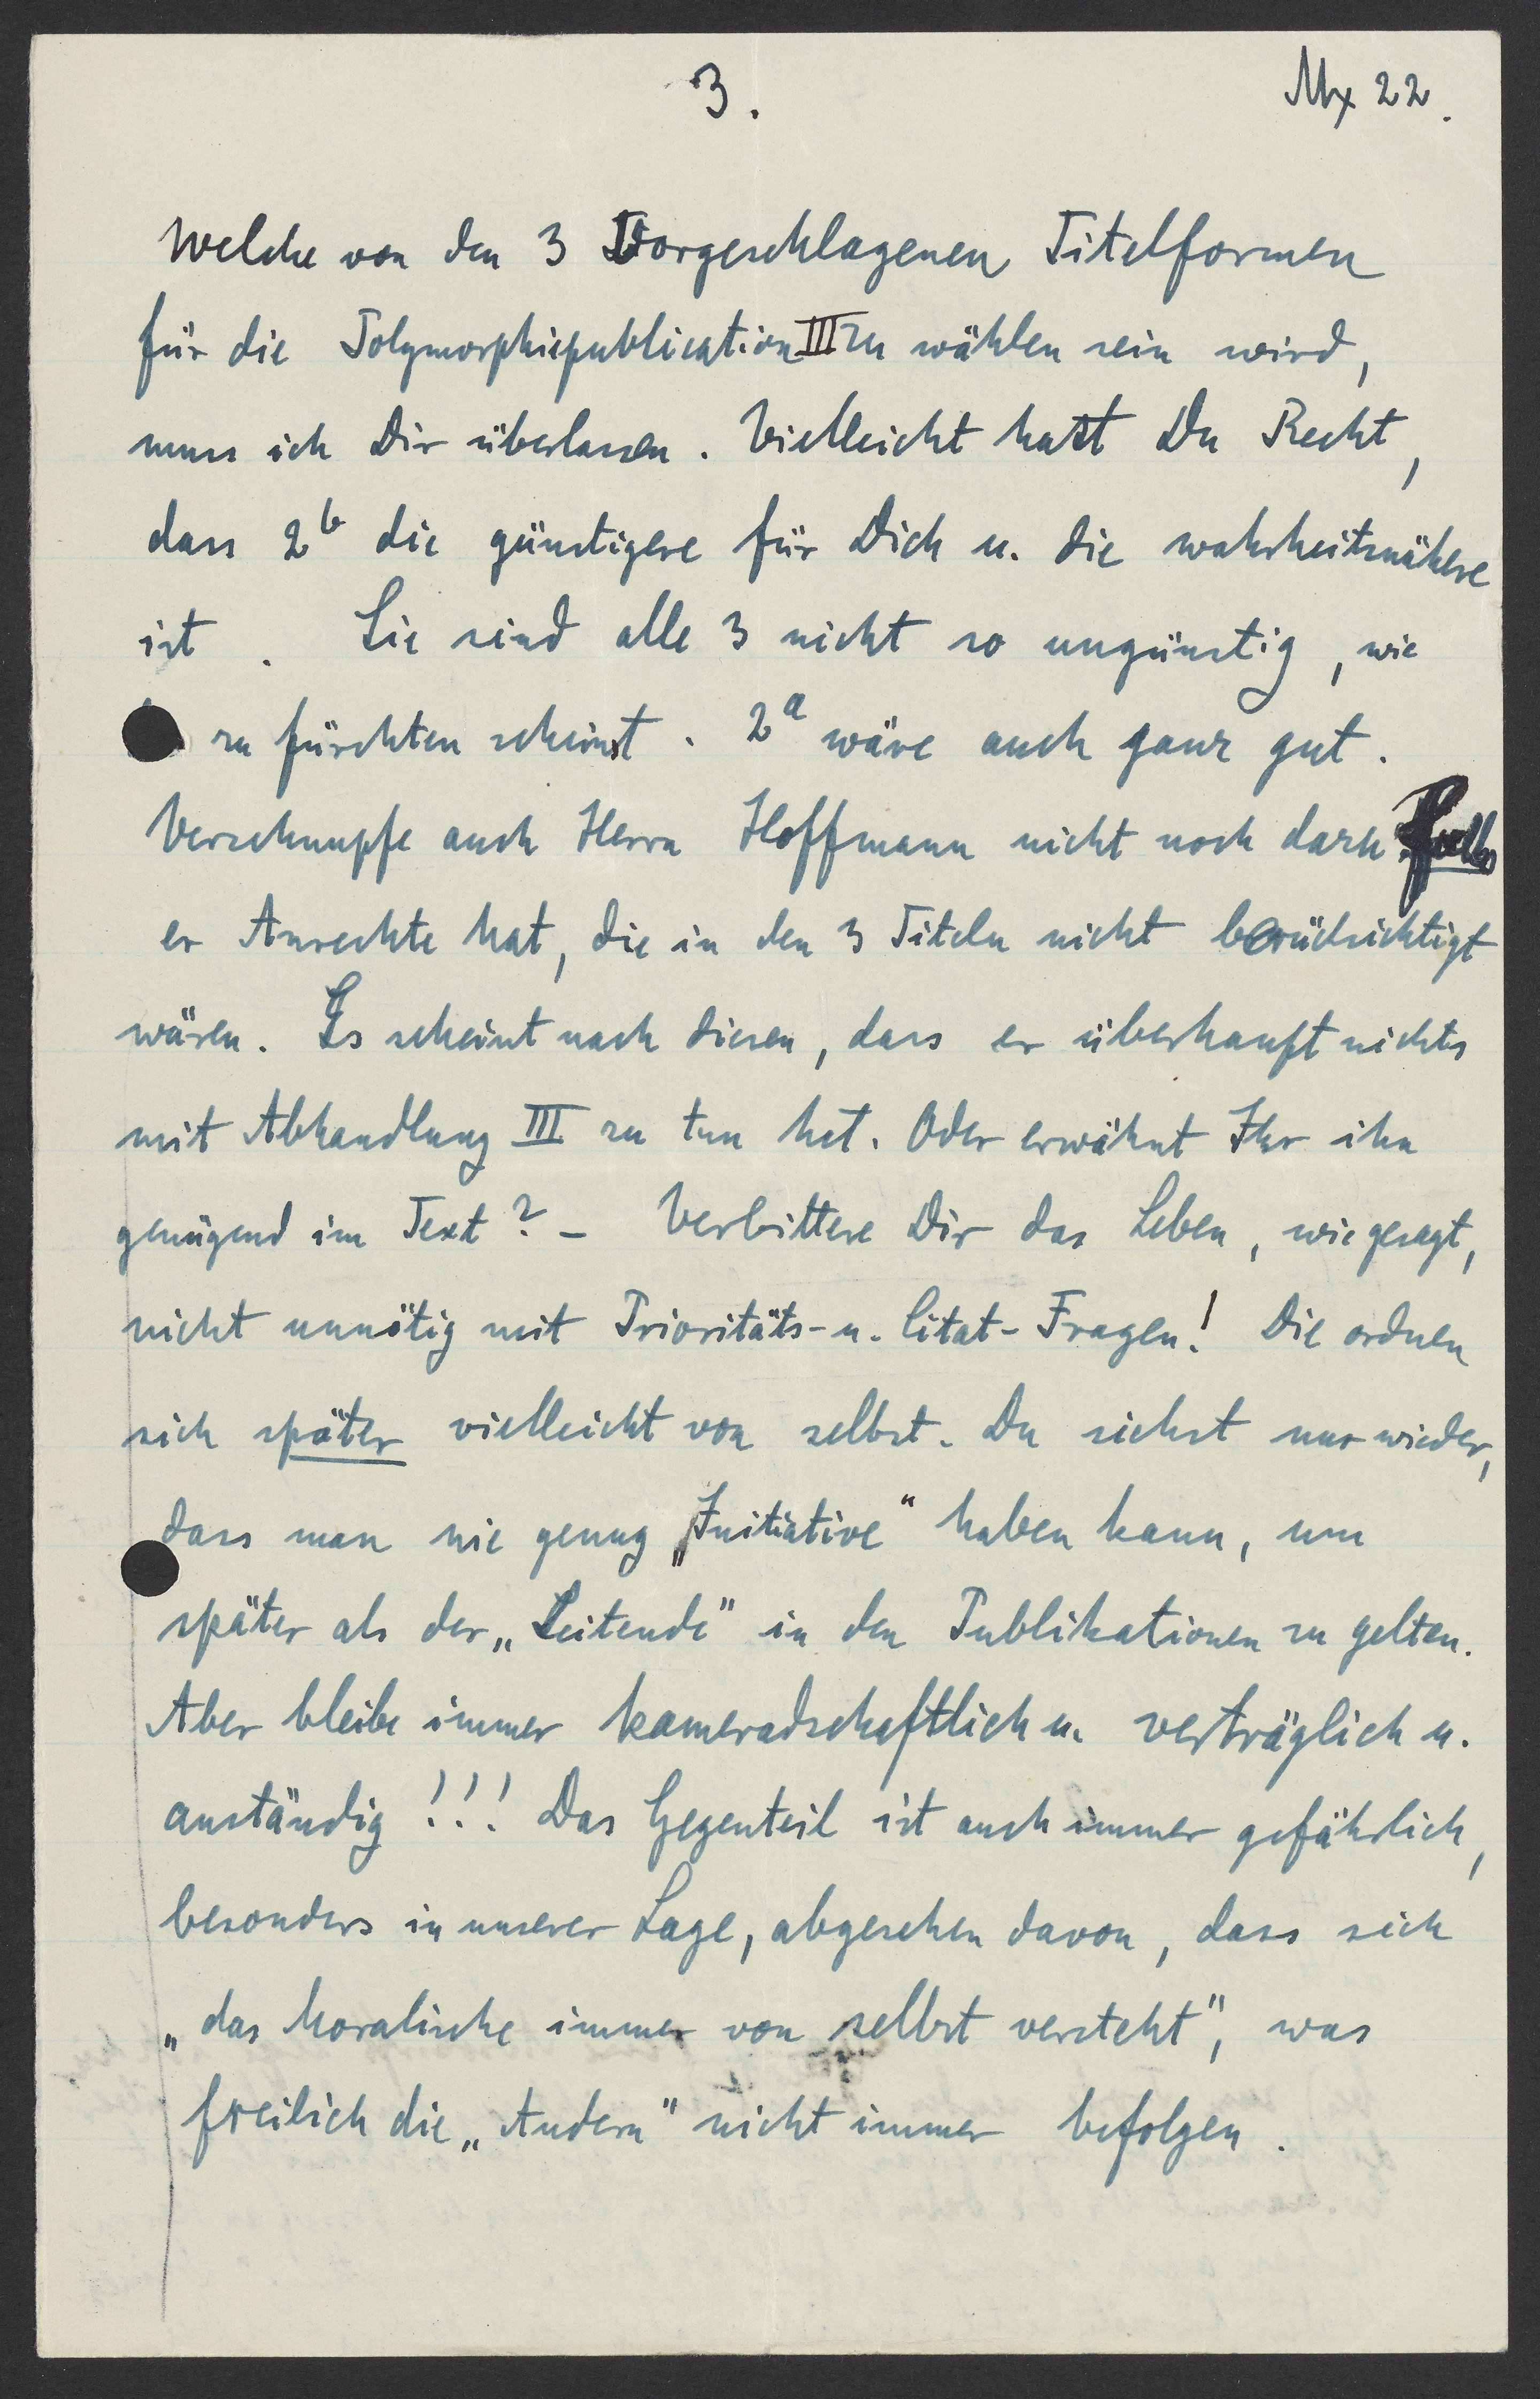 3.
Mx 22.
Welche von den 3 Vorgeschlagenen Titelformen
für die Polymorphiepublication III zu wählen sein wird,
muss ich Dir überlassen. Vielleicht hast Du Recht,
dass 2b die günstigere für Dich u. die wahrheitsnähere
ist. Sie sind alle 3 nicht so ungünstig, wie
zu fürchten scheinst. 2a wäre auch ganz gut.
Verschnupfe auch Herrn Hoffmann nicht noch dazu falls
er Anrechte hat, die in den 3 Titeln nicht berücksichtigt
wären. Es scheint nach diesen, dass er überhaupt nichts
mit Abhandlung III zu tun hat. Oder erwähnt Ihr ihn
genügend im Text? - Verbittere Dir das Leben, wie gesagt,
nicht unnötig mit Prioritäts- u. Citat-Fragen! Die ordnen
sich später vielleicht von selbst. Du siehst nur wieder,
dass man nie genug „Initiative“ haben kann, um
später als der „Leitende“ in den Publikationen zu gelten.
Aber bleibe immer kameradschaftlich u. verträglich u.
anständig!!! Das Gegenteil ist auch immer gefährlich,
besonders in unserer Lage, abgesehen davon, dass sich
„das Moralische immer von selbst versteht“, was
freilich die „Andern“ nicht immer befolgen.